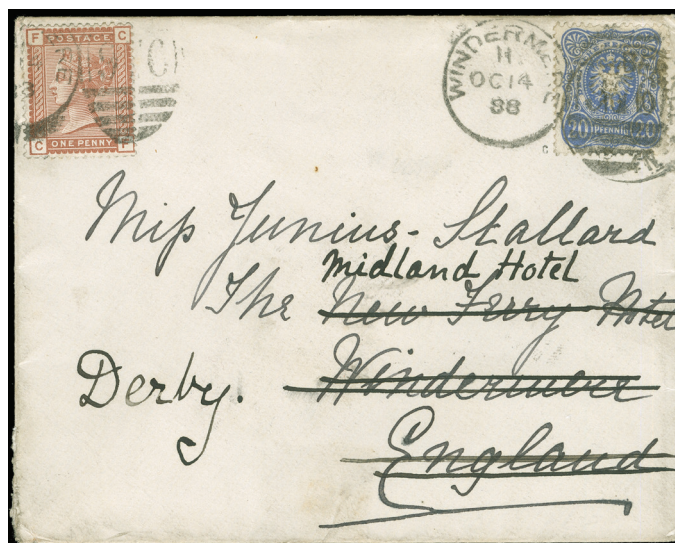 F POSTAGE C
C ONE PENNY F
WINDERMERE
H
OC 14
88
20 PFENNIG 20
Miss Junius-Stallard
Midland Hotel
The New Ferry Hotel
Derby. Windermere
England